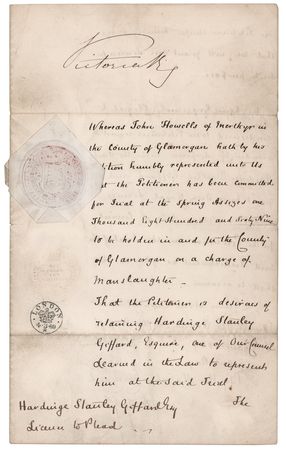 Victoria R
Whereas John Howells of Merthyr in
the County of Glamorgan hath by his
Petition humbly represented unto Us
that the Petitioner has been committed
for Trial at the Spring Assizes one
Thousand Eight Hundred and Sixty Nine
to be holden in and for the County
of Glamorgan on a charge of
Manslaughter.
That the Petitioner is desirous of
retaining Hardinge Stanley
Giffard, Esquire, one of Our Counsel
Learned in the Law to represent
him at the said Trial.
The
LONDON
Hardinge Stanley Giffard Esq
Licence to Plead